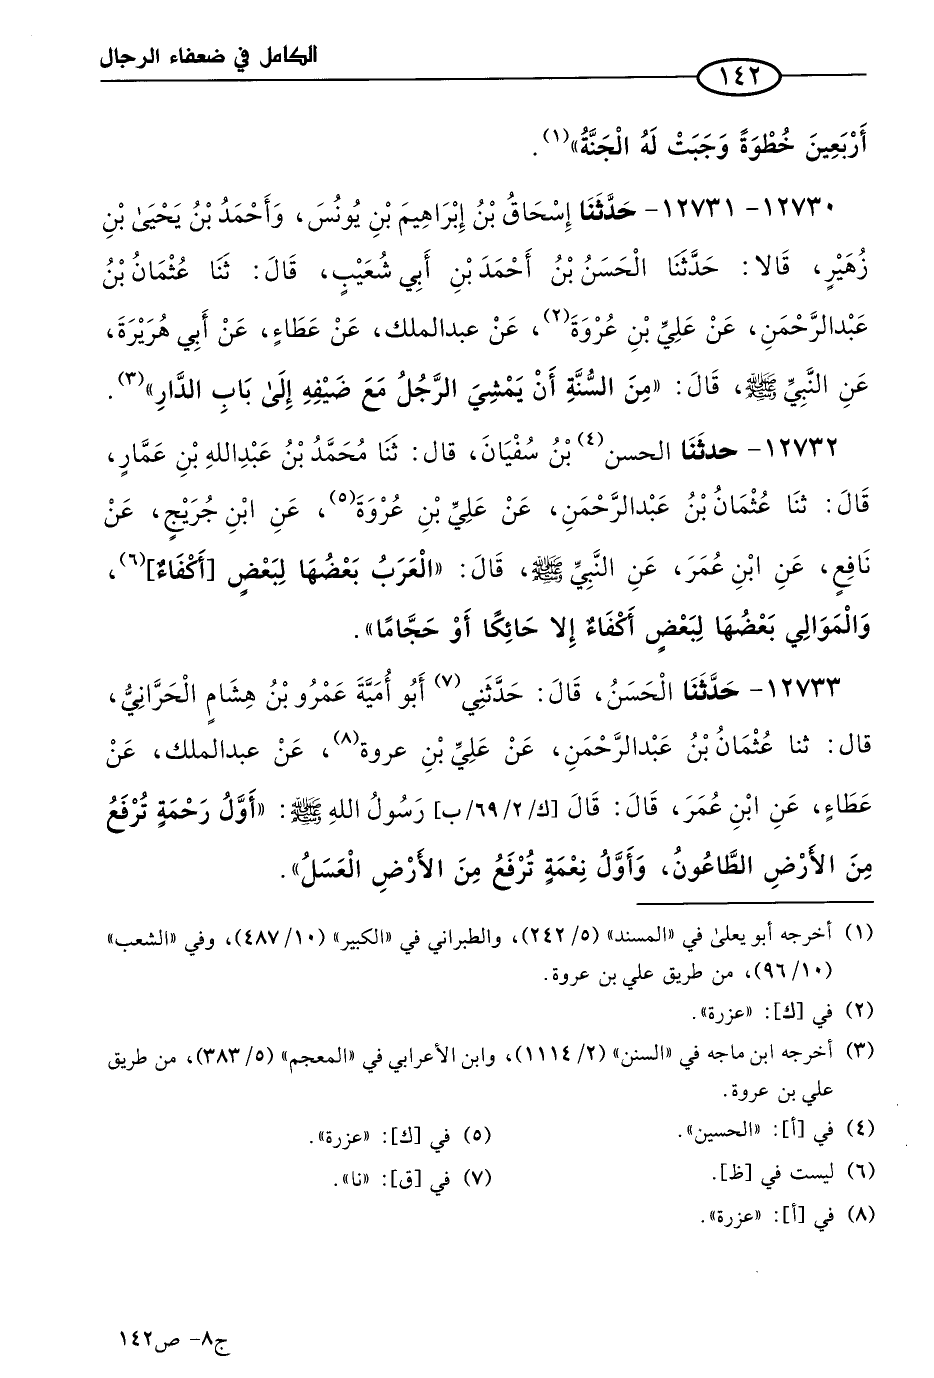 الكامل في ضعفاء الرجال
١٤٢
أَرْبَعِينَ خُطْوَةً وَجَبَتْ لَهُ الْجَنَّةُ»(١).
١٢٧٣٠- ١٢٧٣١- حَدَّثَنَا إِسْحَاقُ بْنُ إِبْرَاهِيمَ بْنِ يُونُسَ، وَأَحْمَدُ بْنُ يَحْيَىٰ بْنِ
زُهَيْرٍ، قَالا: حَدَّثَنَا الْحَسَنُ بْنُ أَحْمَدَ بْنِ أَبِي شُعَيْبٍ، قَالَ: ثَنَا عُثْمَانُ بْنُ
عَبْدِالرَّحْمَنِ، عَنْ عَلِيِّ بْنِ عُرْوَةَ(٢)، عَنْ عبدالملك، عَنْ عَطَاءٍ، عَنْ أَبِي هُرَيْرَةَ،
عَنِ النَّبِيِّ ﷺ، قَالَ: «مِنَ السُّنَّةِ أَنْ يَمْشِيَ الرَّجُلُ مَعَ ضَيْفِهِ إِلَىٰ بَابِ الدَّارِ»(٣).
١٢٧٣٢- حدثَنَا الحسن(٤) بْنُ سُفْيَانَ، قال: ثَنَا مُحَمَّدُ بْنُ عَبْدِاللهِ بْنِ عَمَّارٍ،
قَالَ: ثنَا عُثْمَانُ بْنُ عَبْدِالرَّحْمَنِ، عَنْ عَلِيِّ بْنِ عُرْوَةَ(٥)، عَنِ ابْنِ جُرَيْجٍ، عَنْ
نَافِعٍ، عَنِ ابْنِ عُمَرَ، عَنِ النَّبِيِّ ﷺ، قَالَ: «الْعَرَبُ بَعْضُهَا لِبَعْضٍ [أَكْفَاءٌ](٦)،
وَالْمَوَالِي بَعْضُهَا لِبَعْضٍ أَكْفَاءٌ إِلا حَائِكًا أَوْ حَجَّامًا».
١٢٧٣٣- حَدَّثَنَا الْحَسَنُ، قَالَ: حَدَّثَنِي(٧) أَبُو أُمَيَّةَ عَمْرُو بْنُ هِشَامٍ الْحَرَّانِيُّ،
قال: ثنا عُثْمَانُ بْنُ عَبْدِالرَّحْمَنِ، عَنْ عَلِيِّ بْنِ عروة(٨)، عَنْ عبدالملك، عَنْ
عَطَاءٍ، عَنِ ابْنِ عُمَرَ، قَالَ: قَالَ [ك/٢/ ٦٩/ب] رَسُولُ اللهِ ﷺ: «أَوَّلُ رَحْمَةٍ تُرْفَعُ
مِنَ الأَرْضِ الطَّاعُونُ، وَأَوَّلُ نِعْمَةٍ تُرْفَعُ مِنَ الأَرْضِ الْعَسَلُ».
(١) أخرجه أبو يعلىٰ في «المسند» (٥/ ٢٤٢)، والطبراني في «الكبير» (١٠/ ٤٨٧)، وفي «الشعب»
(١٠/ ٩٦)، من طريق علي بن عروة.
(٢) في [ك]: «عزرة».
(٣) أخرجه ابن ماجه في «السنن» (٢/ ١١١٤)، وابن الأعرابي في «المعجم» (٥/ ٣٨٣)، من طريق
علي بن عروة.
(٤) في [أ]: «الحسين». (٥) في [ك]: «عزرة».
(٦) ليست في [ظ]. (٧) في [ق]: «نا».
(٨) في [أ]: «عزرة».
ج٨- ص١٤٢